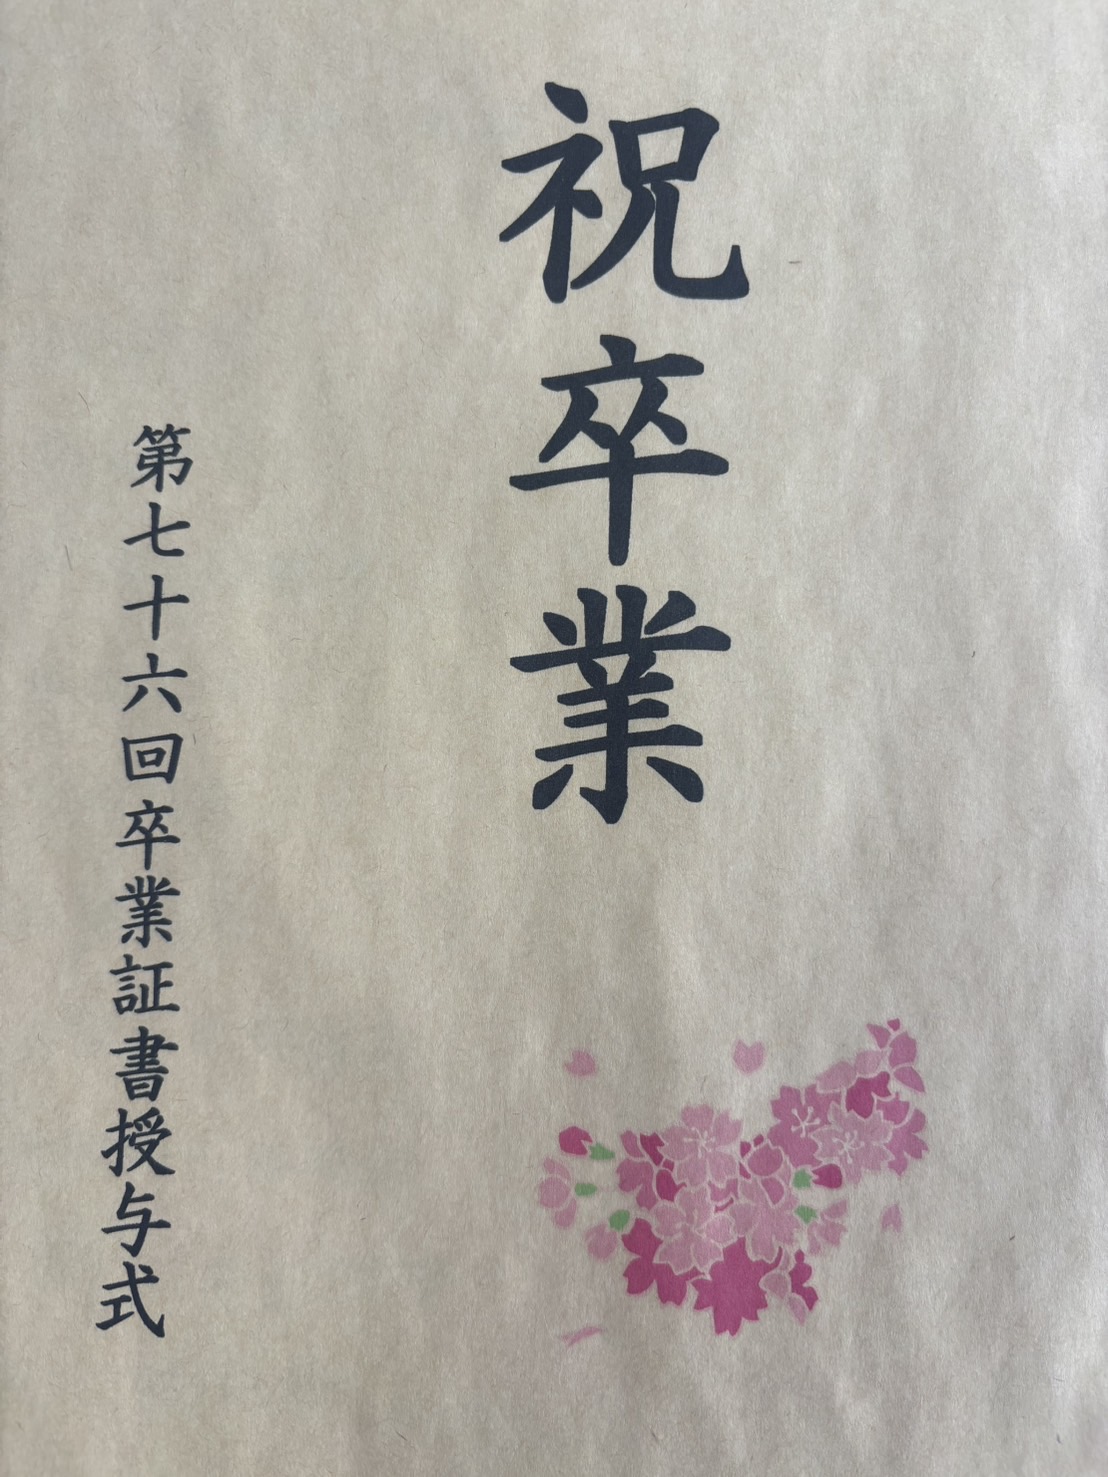 祝卒業
第七十六回卒業証書授与式